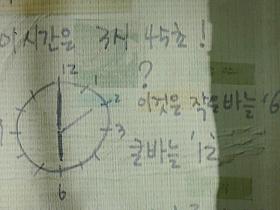 시간은 3시 45초!
?
12
1
2
이것은 작은바늘 '6
3
큰바늘 '12
6